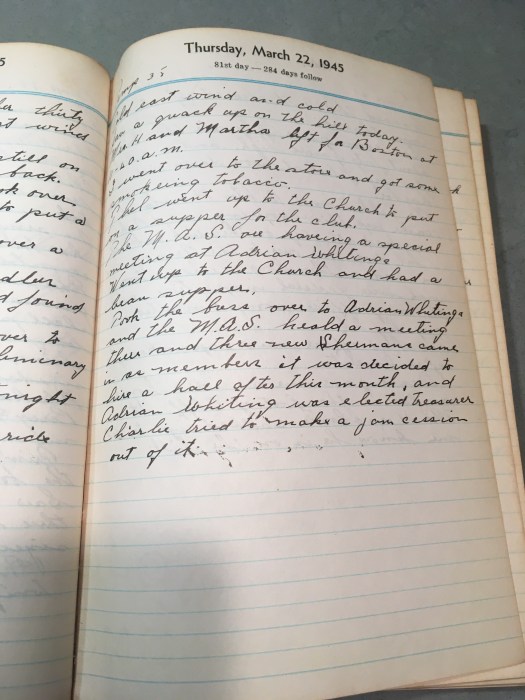 5
for thirty
st winds
still on
back.
ok over
to put a
over a
dler
d found
over to
liminary
night
ride
Thursday, March 22, 1945
81st day — 284 days follow
35
east wind and cold
a quack up on the hill today.
H and Martha left for Boston at
a.m.
I went over to the store and got some
smokeing tobacco.
Ethel went up to the Church to put
on a supper for the club.
The M.A.S. are haveing a special
meeting at Adrian Whitings
Went up to the Church and had a
bean supper.
Took the buss over to Adrian Whitings
and the M.A.S. heald a meeting
thur and three new Shermans came
in as members it was decided to
hire a hall after this month, and
Adrian Whiting was elected treasurer
Charlie tried to make a jam cession
out of it.